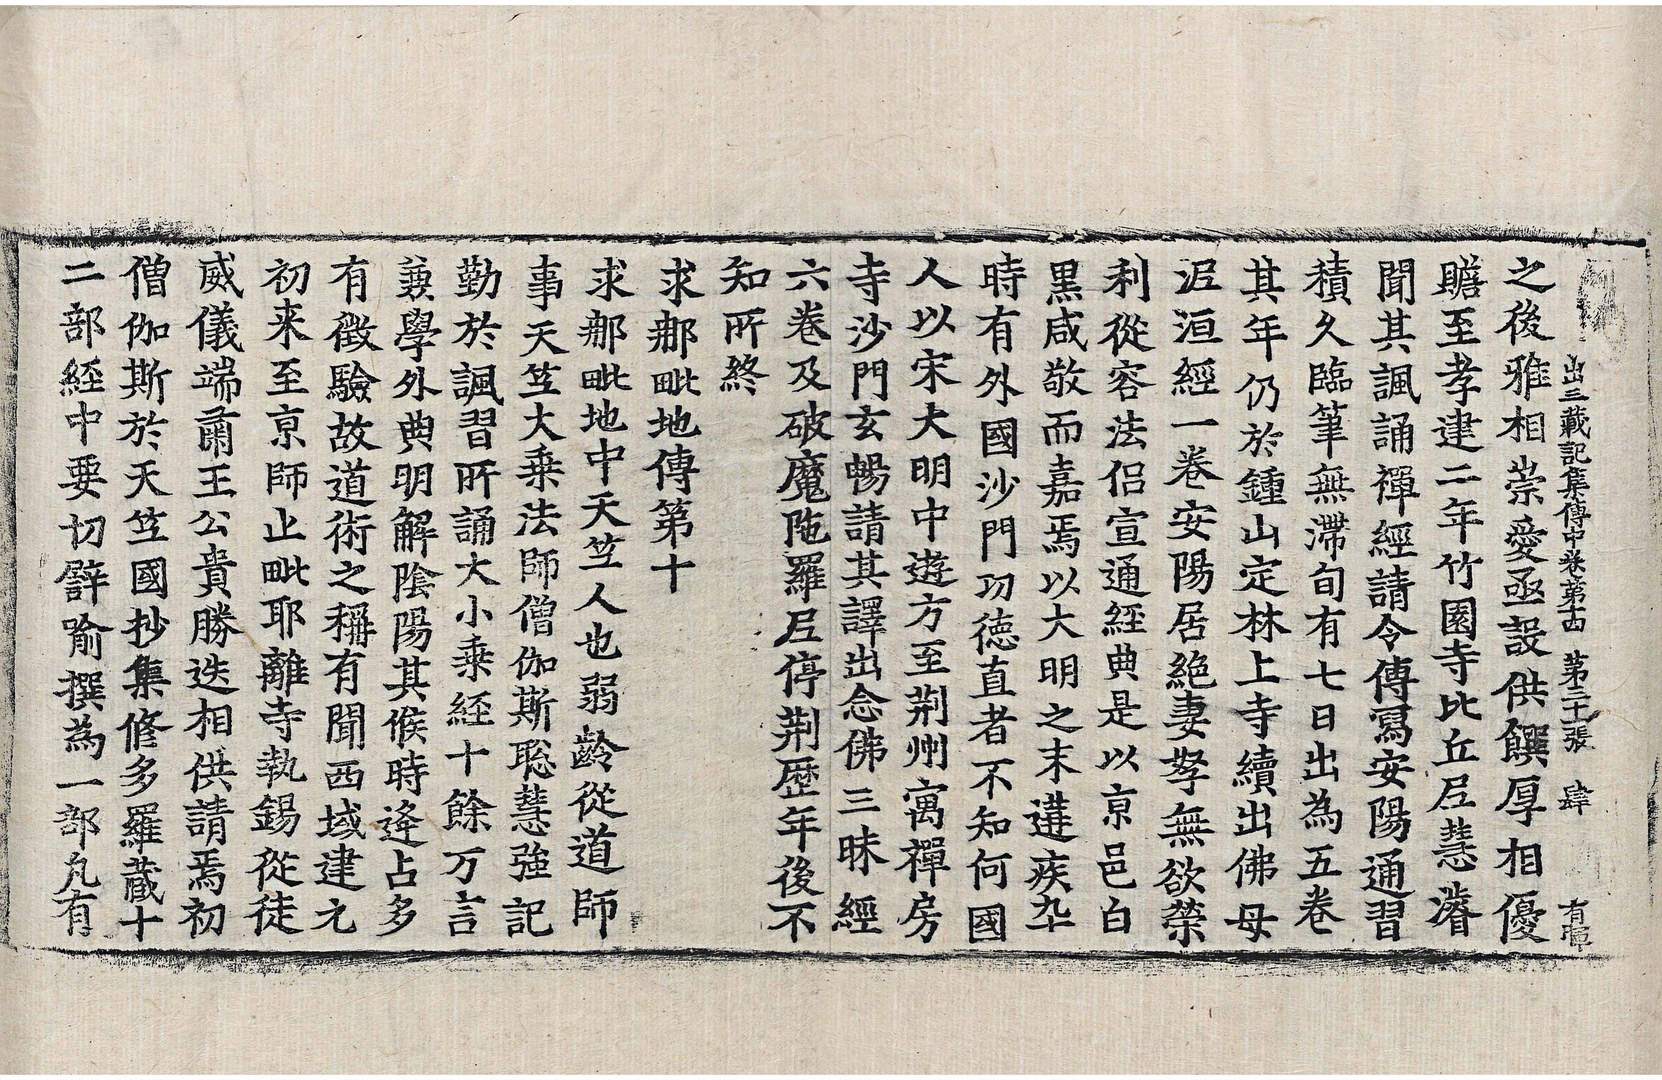 出三藏記集傳中卷第十四 第二十二張 肆 有暉
之後雅相崇愛亟設供饌厚相優
贍至孝建二年竹園寺比丘尼慧濬
聞其諷誦禪經請令傳寫安陽通習
積久臨筆無滯旬有七日出為五卷
其年仍於鍾山定林上寺續出佛母
泥洹經一卷安陽居絶妻孥無欲榮
利從容法侶宣通經典是以京邑白
黑咸敬而嘉焉以大明之末遘疾卒
時有外國沙門功徳直者不知何國
人以宋大明中遊方至荊州寓禪房
寺沙門玄暢請其譯出念佛三昧經
六卷及破魔陁羅尼停荊歷年後不
知所終
求那毗地傳第十
求那毗地中天竺人也弱齡從道師
事天竺大乗法師僧伽斯聡慧強記
勤於諷習所誦大小乗経十餘万言
兼學外典明解陰陽其候時逄占多
有徵驗故道術之稱有聞西域建元
初来至京師止毗耶離寺執錫從徒
威儀端肅王公貴勝迭相供請焉初
僧伽斯於天竺國抄集修多羅藏十
二部経中要切譬喻撰為一部凡有